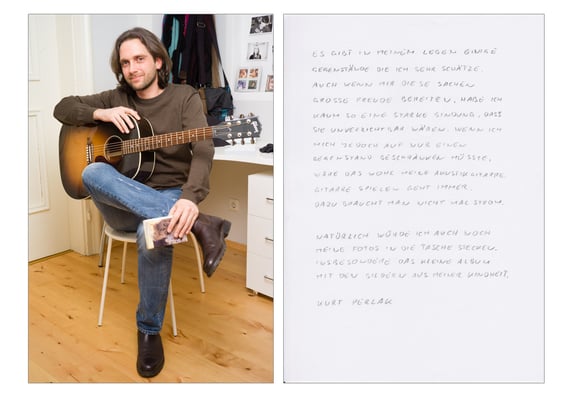 ES GIBT IN MEINEM LEBEN EINIGE
GEGENSTÄNDE DIE ICH SEHR SCHÄTZE.
AUCH WENN MIR DIESE SACHEN
GROSSE FREUDE BEREITEN, HABE ICH
KAUM SO EINE STARKE BINDUNG, DASS
SIE UNVERZICHTBAR WÄREN. WENN ICH
MICH JEDOCH AUF NUR EINEN
GEGENSTAND BESCHRÄNKEN MÜSSTE,
WÄRE DAS WOHL MEINE AKUSTIKGITARRE.
GITARRE SPIELEN GEHT IMMER.
DAZU BRAUCHT MAN NICHT MAL STROM.
NATÜRLICH WÜRDE ICH AUCH NOCH
MEINE FOTOS IN DIE TASCHE STECKEN.
INSBESONDERE DAS KLEINE ALBUM
MIT DEN BILDERN AUS MEINER KINDHEIT.
KURT PERLAK